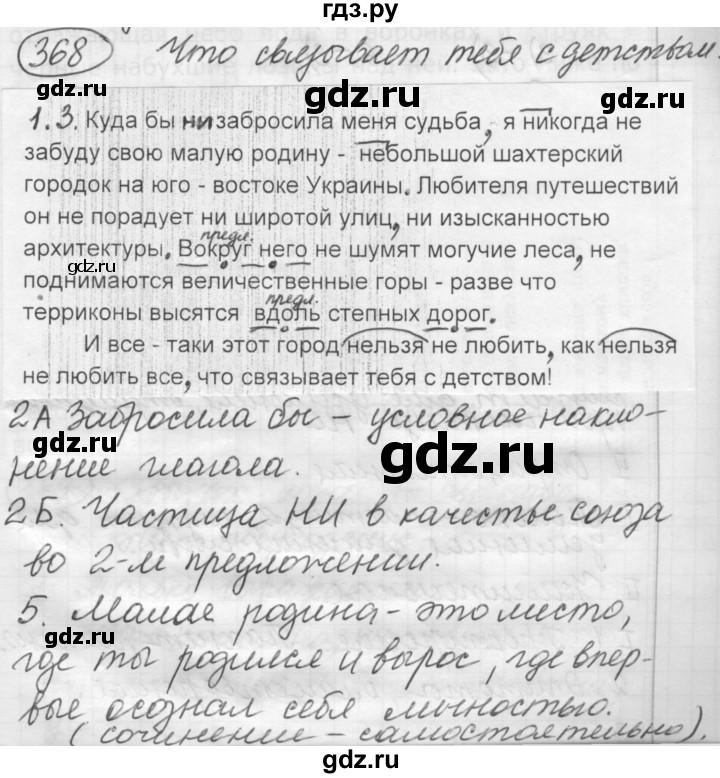 гдз.ру
368 Что связывает тебя с детством.
1.3. Куда бы ни забросила меня судьба, я никогда не
забуду свою малую родину - небольшой шахтерский
городок на юго - востоке Украины. Любителя путешествий
он не порадует ни широтой улиц, ни изысканностью
предл.
архитектуры. Вокруг него не шумят могучие леса, не
поднимаются величественные горы - разве что
предл.
терриконы высятся вдоль степных дорог.
И все - таки этот город нельзя не любить, как нельзя
не любить все, что связывает тебя с детством!
2А Забросила бы - условное накло-
нение глагола.
2Б. Частица НИ в качестве союза
во 2-м предложении.
5. Малая родина - это место,
где ты родился и вырос, где впер-
вые осознал себя личностью.
(сочинение - самостоятельно).
gdz.ru
gdz.ru
gdz.ru
gdz.ru
gdz.ru
gdz.ru
gdz.ru
gdz.ru
gdz.ru
gdz.ru
gdz.ru
gdz.ru
gdz.ru